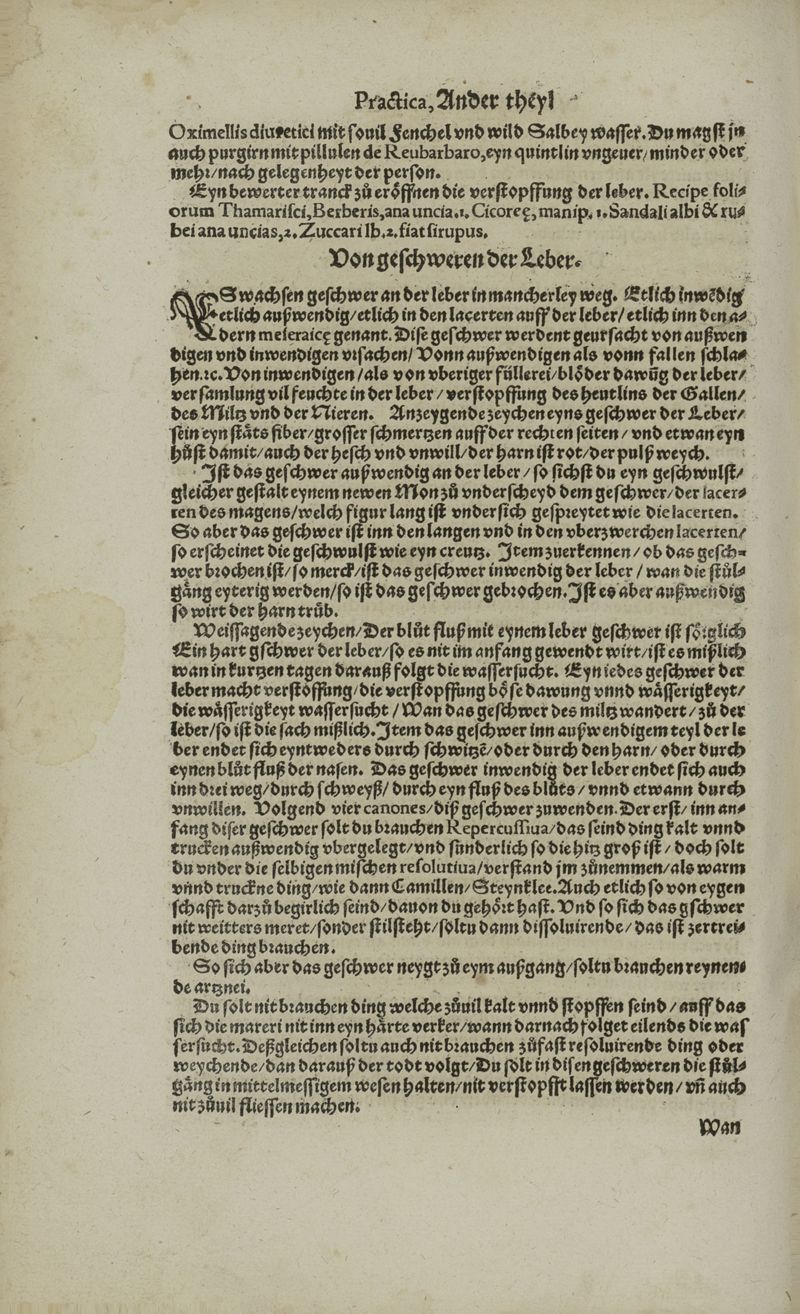 Practica, Ander theyl
Oximellis diuretici mit souil Fenchel vnd wild Salbey wasser. Du magst jn
auch purgirn mit pillulen de Reubarbaro, eyn quintlin vngeuer/ minder oder
mehr/ nach gelegenheyt der person.
Eyn bewerter tranck zů eröffnen die verstopffung der leber. Recipe foli⸗
orum Thamarisci, Berberis, ana uncia. 1. Cicoreę, manip. 1. Sandali albi & ru⸗
bei ana uncias, 2. Zuccari lb. 2. fiat sirupus.
Von geschweren der Leber.
ES wachsen geschwer an der leber in mancherley weg. Etlich inwēdig
etlich außwendig/ etlich in den lacerten auff der leber/ etlich inn den a⸗
dern meseraicę genant. Dise geschwer werdent geursacht von außwen
digen vnd inwendigen vrsachen/ Vonn außwendigen als vonn fallen schla⸗
hen. ꝛc. Von inwendigen/ als von vberiger füllerei/ blöder dawūg der leber/
versamlung vil feuchte in der leber/ verstopffung des heutlins der Gallen/
des Miltz vnd der Nieren. Anzeygende zeychen eyns geschwer der Leber/
sein eyn stäts fiber/ grosser schmertzen auff der rechten seiten/ vnd etwan eyn
hůst damit/ auch der hesch vnd vnwill/ der harn ist rot/ der pulß weych.
Ist das geschwer außwendig an der leber/ so sichst du eyn geschwulst/
gleicher gestalt eynem newen Mon zů vnderscheyd dem geschwer/ der lacer⸗
ten des magens/ welch figur lang ist vndersich gespreytet wie die lacerten.
So aber das geschwer ist inn den langen vnd in den vberzwerchen lacerten/
so erscheinet die geschwulst wie eyn creutz. Item zuerkennen/ ob das gesch⸗
wer brochen ist/ so merck/ ist das geschwer inwendig der leber/ wan die stůl⸗
gäng eyterig werden/ so ist das geschwer gebrochen. Ist es aber außwendig
so wirt der harn trüb.
Weissagende zeychen/ Der blůt fluß mit eynem leber geschwer ist sörglich
Ein hart gschwer der leber/ so es nit im anfang gewendt wirt/ ist es mißlich
wan in kurtzen tagen darauß folgt die wassersucht. Eyn iedes geschwer der
leber macht verstöffung/ die verstopffung böse dawung vnnd wässerigkeyt/
die wässerigkeyt wassersucht/ Wan das geschwer des miltz wandert/ zů der
leber/ so ist die sach mißlich. Item das geschwer inn außwendigem teyl der le
ber endet sich eyntweders durch schwitzē/ oder durch den harn/ oder durch
eynen blůt fluß der nasen. Das geschwer inwendig der leber endet sich auch
inn drei weg/ durch schweyß/ durch eyn fluß des blůts/ vnnd etwann durch
vnwillen. Volgend vier canones/ diß geschwer zuwenden. Der erst/ inn an⸗
fang diser geschwer solt du brauchen Repercussiua/ das seind ding kalt vnnd
trucken außwendig vbergelegt/ vnd sunderlich so die hitz groß ist/ doch solt
du vnder die selbigen mischen resolutiua/ verstand jm zůnemmen/ als warm
vnnd truckne ding/ wie dann Camillen/ Steynklee. Auch etlich so von eygen
schafft darzů begirlich seind/ dauon du gehört hast. Vnd so sich das gschwer
nit weitters meret/ sonder stilsteht/ soltu dann dissoluirende/ das ist zertrei⸗
bende ding brauchen.
So sich aber das geschwer neygt zů eym außgang/ soltu brauchen reynen⸗
de artznei.
Du solt nit brauchen ding welche zůuil kalt vnnd stopffen seind/ auff das
sich die mareri nit inn eyn härte verker/ wann darnach folget eilends die was
sersucht. Deßgleichen soltu auch nit brauchen zůfast resoluirende ding oder
weychende/ dan darauß der todt volgt/ Du solt in disen geschweren die stůl⸗
gäng in mittelmessigem wesen halten/ nit verstopfft lassen werden/ vñ auch
nit zůuil fliessen machen.
Wan